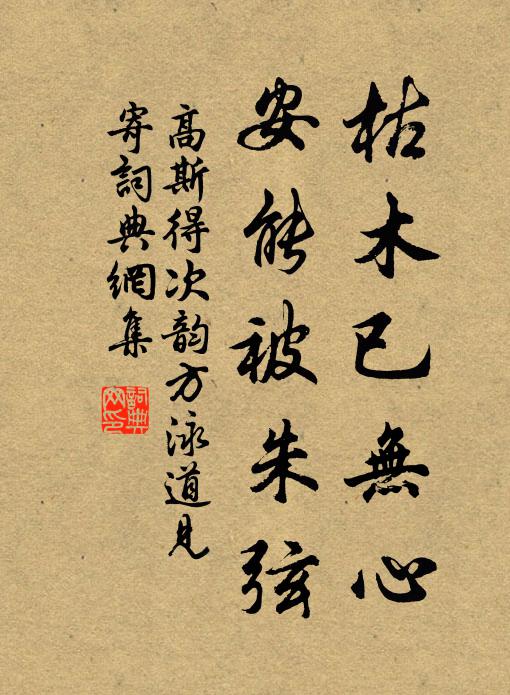 枯木已無心
安能被朱弦
高斯得次韵方泳道見
寄詞典網集
詞典
網印